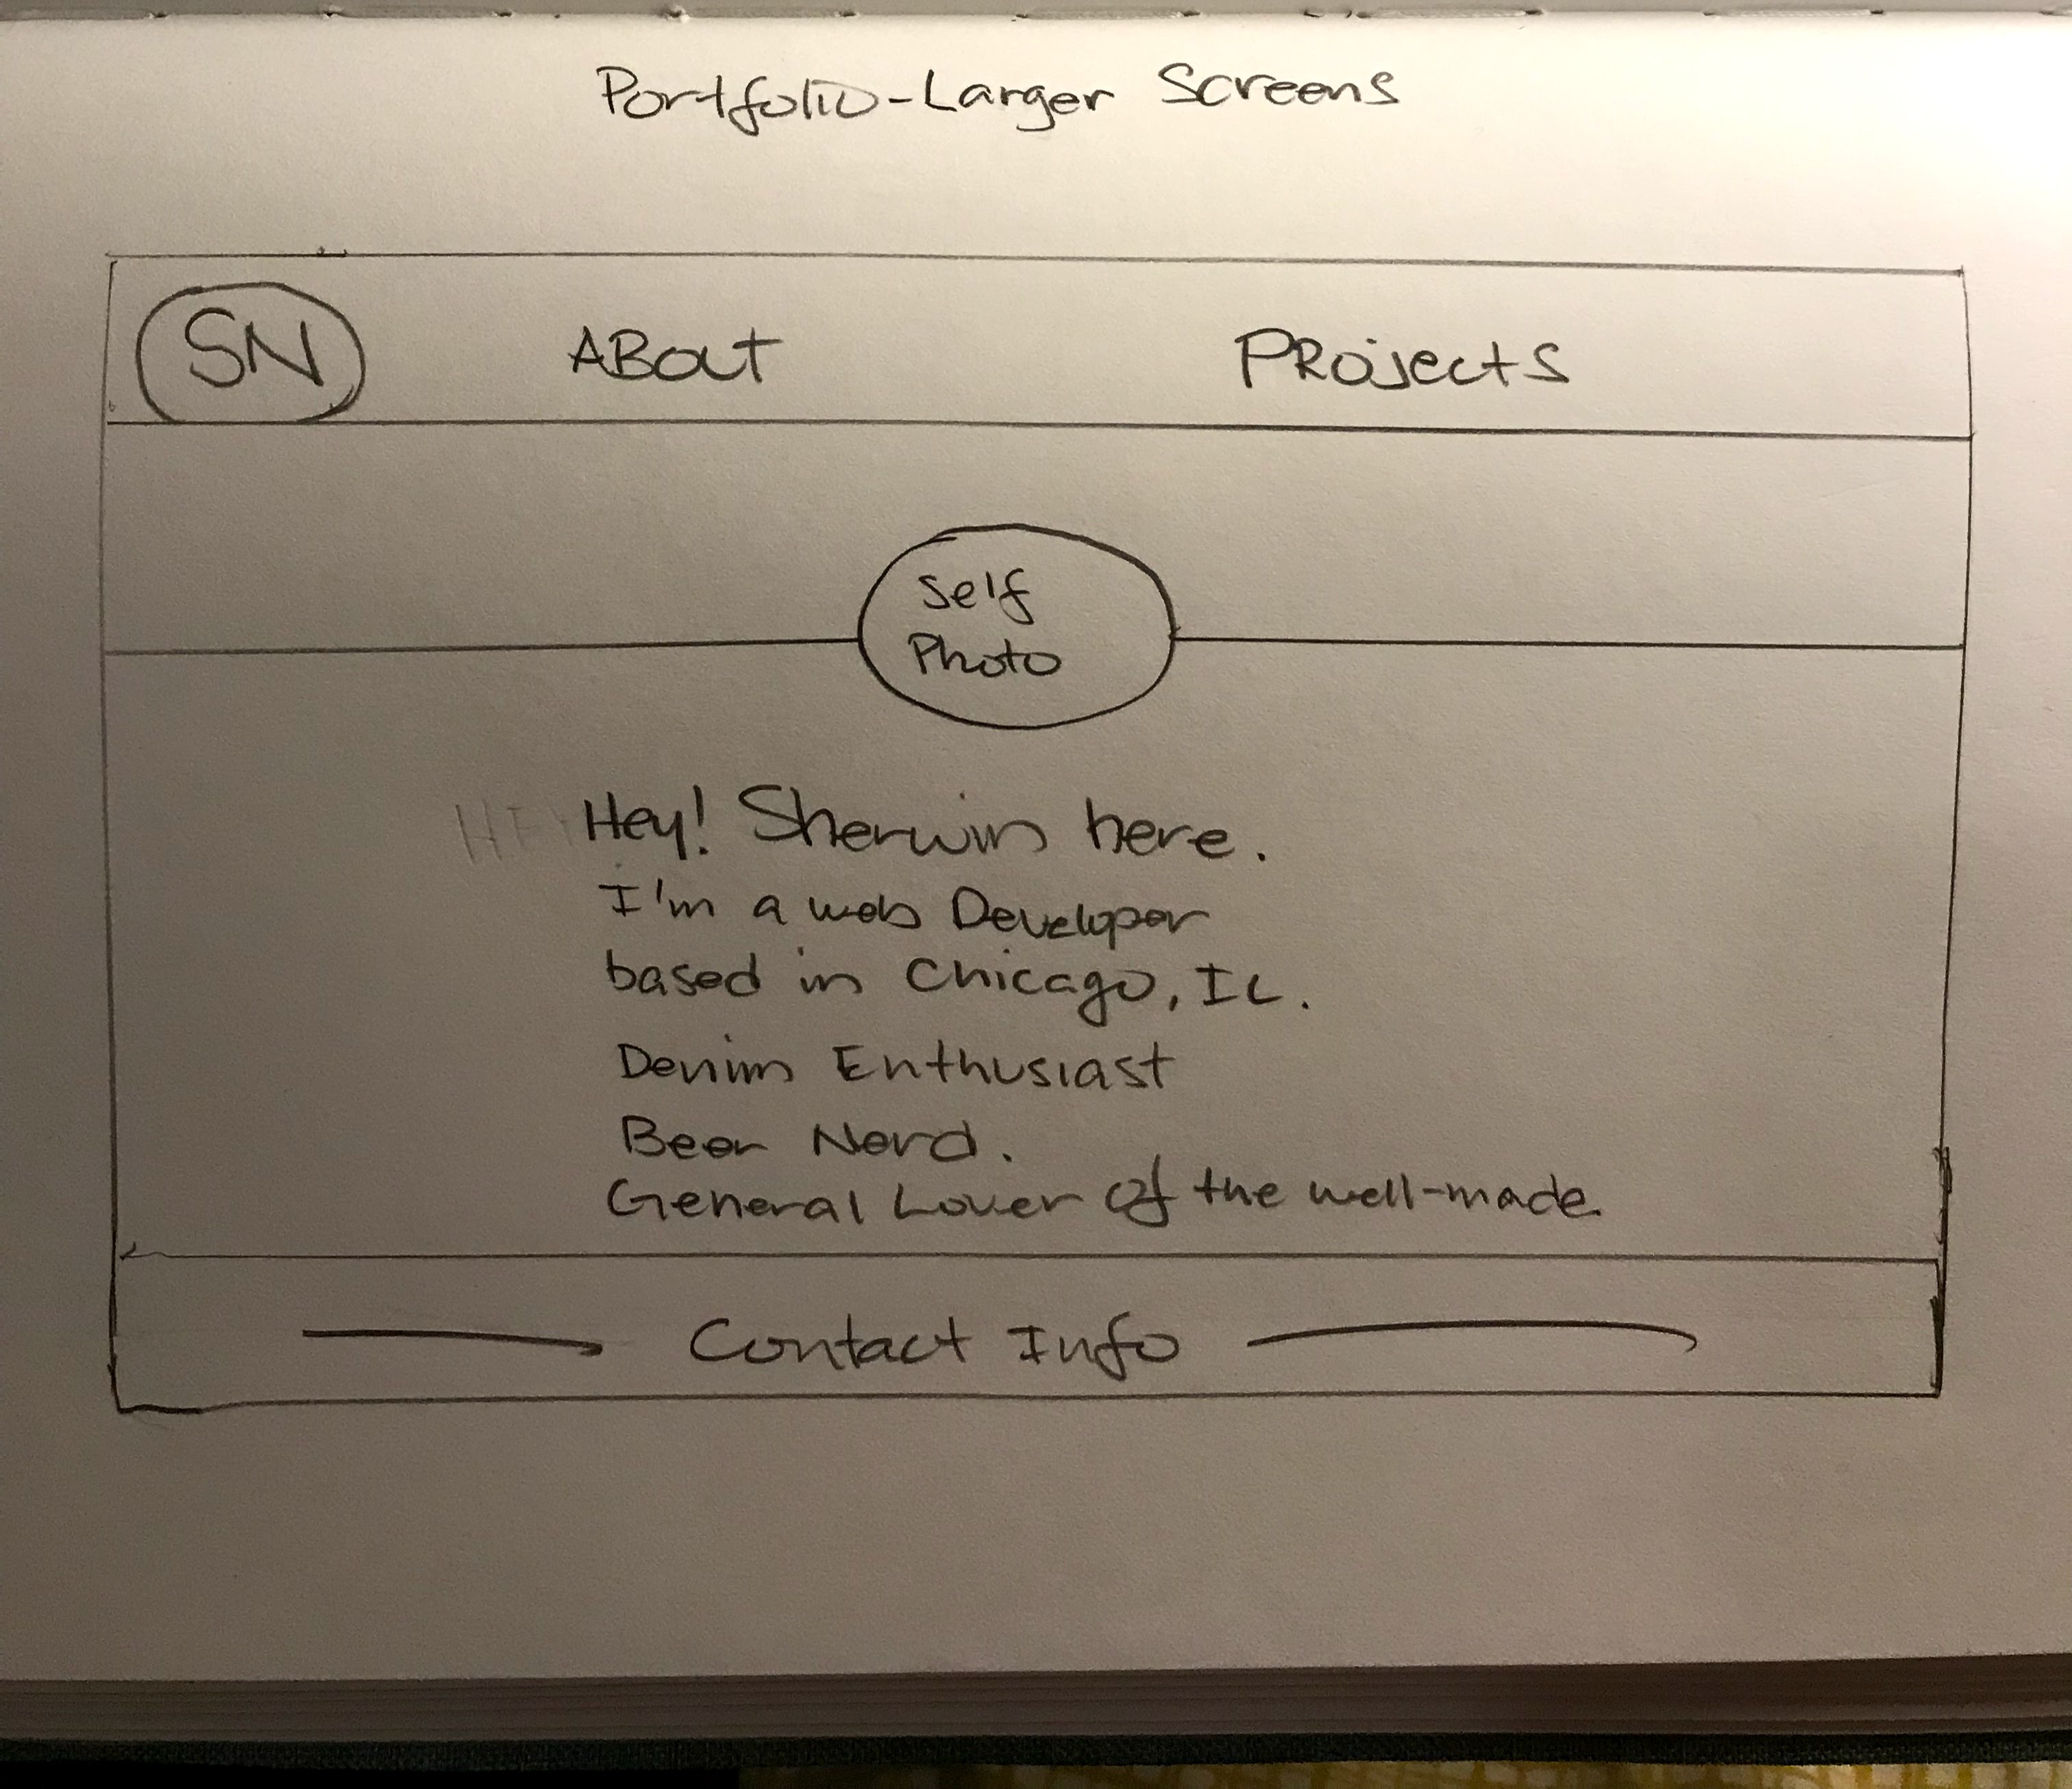 Portfolio-Larger Screens
SN ABout PRojects
Self
Photo
Hey! Sherwin here.
I'm a web Developer
based in Chicago, IL.
Denim Enthusiast
Beer Nerd.
General Lover of the well-made.
Contact Info